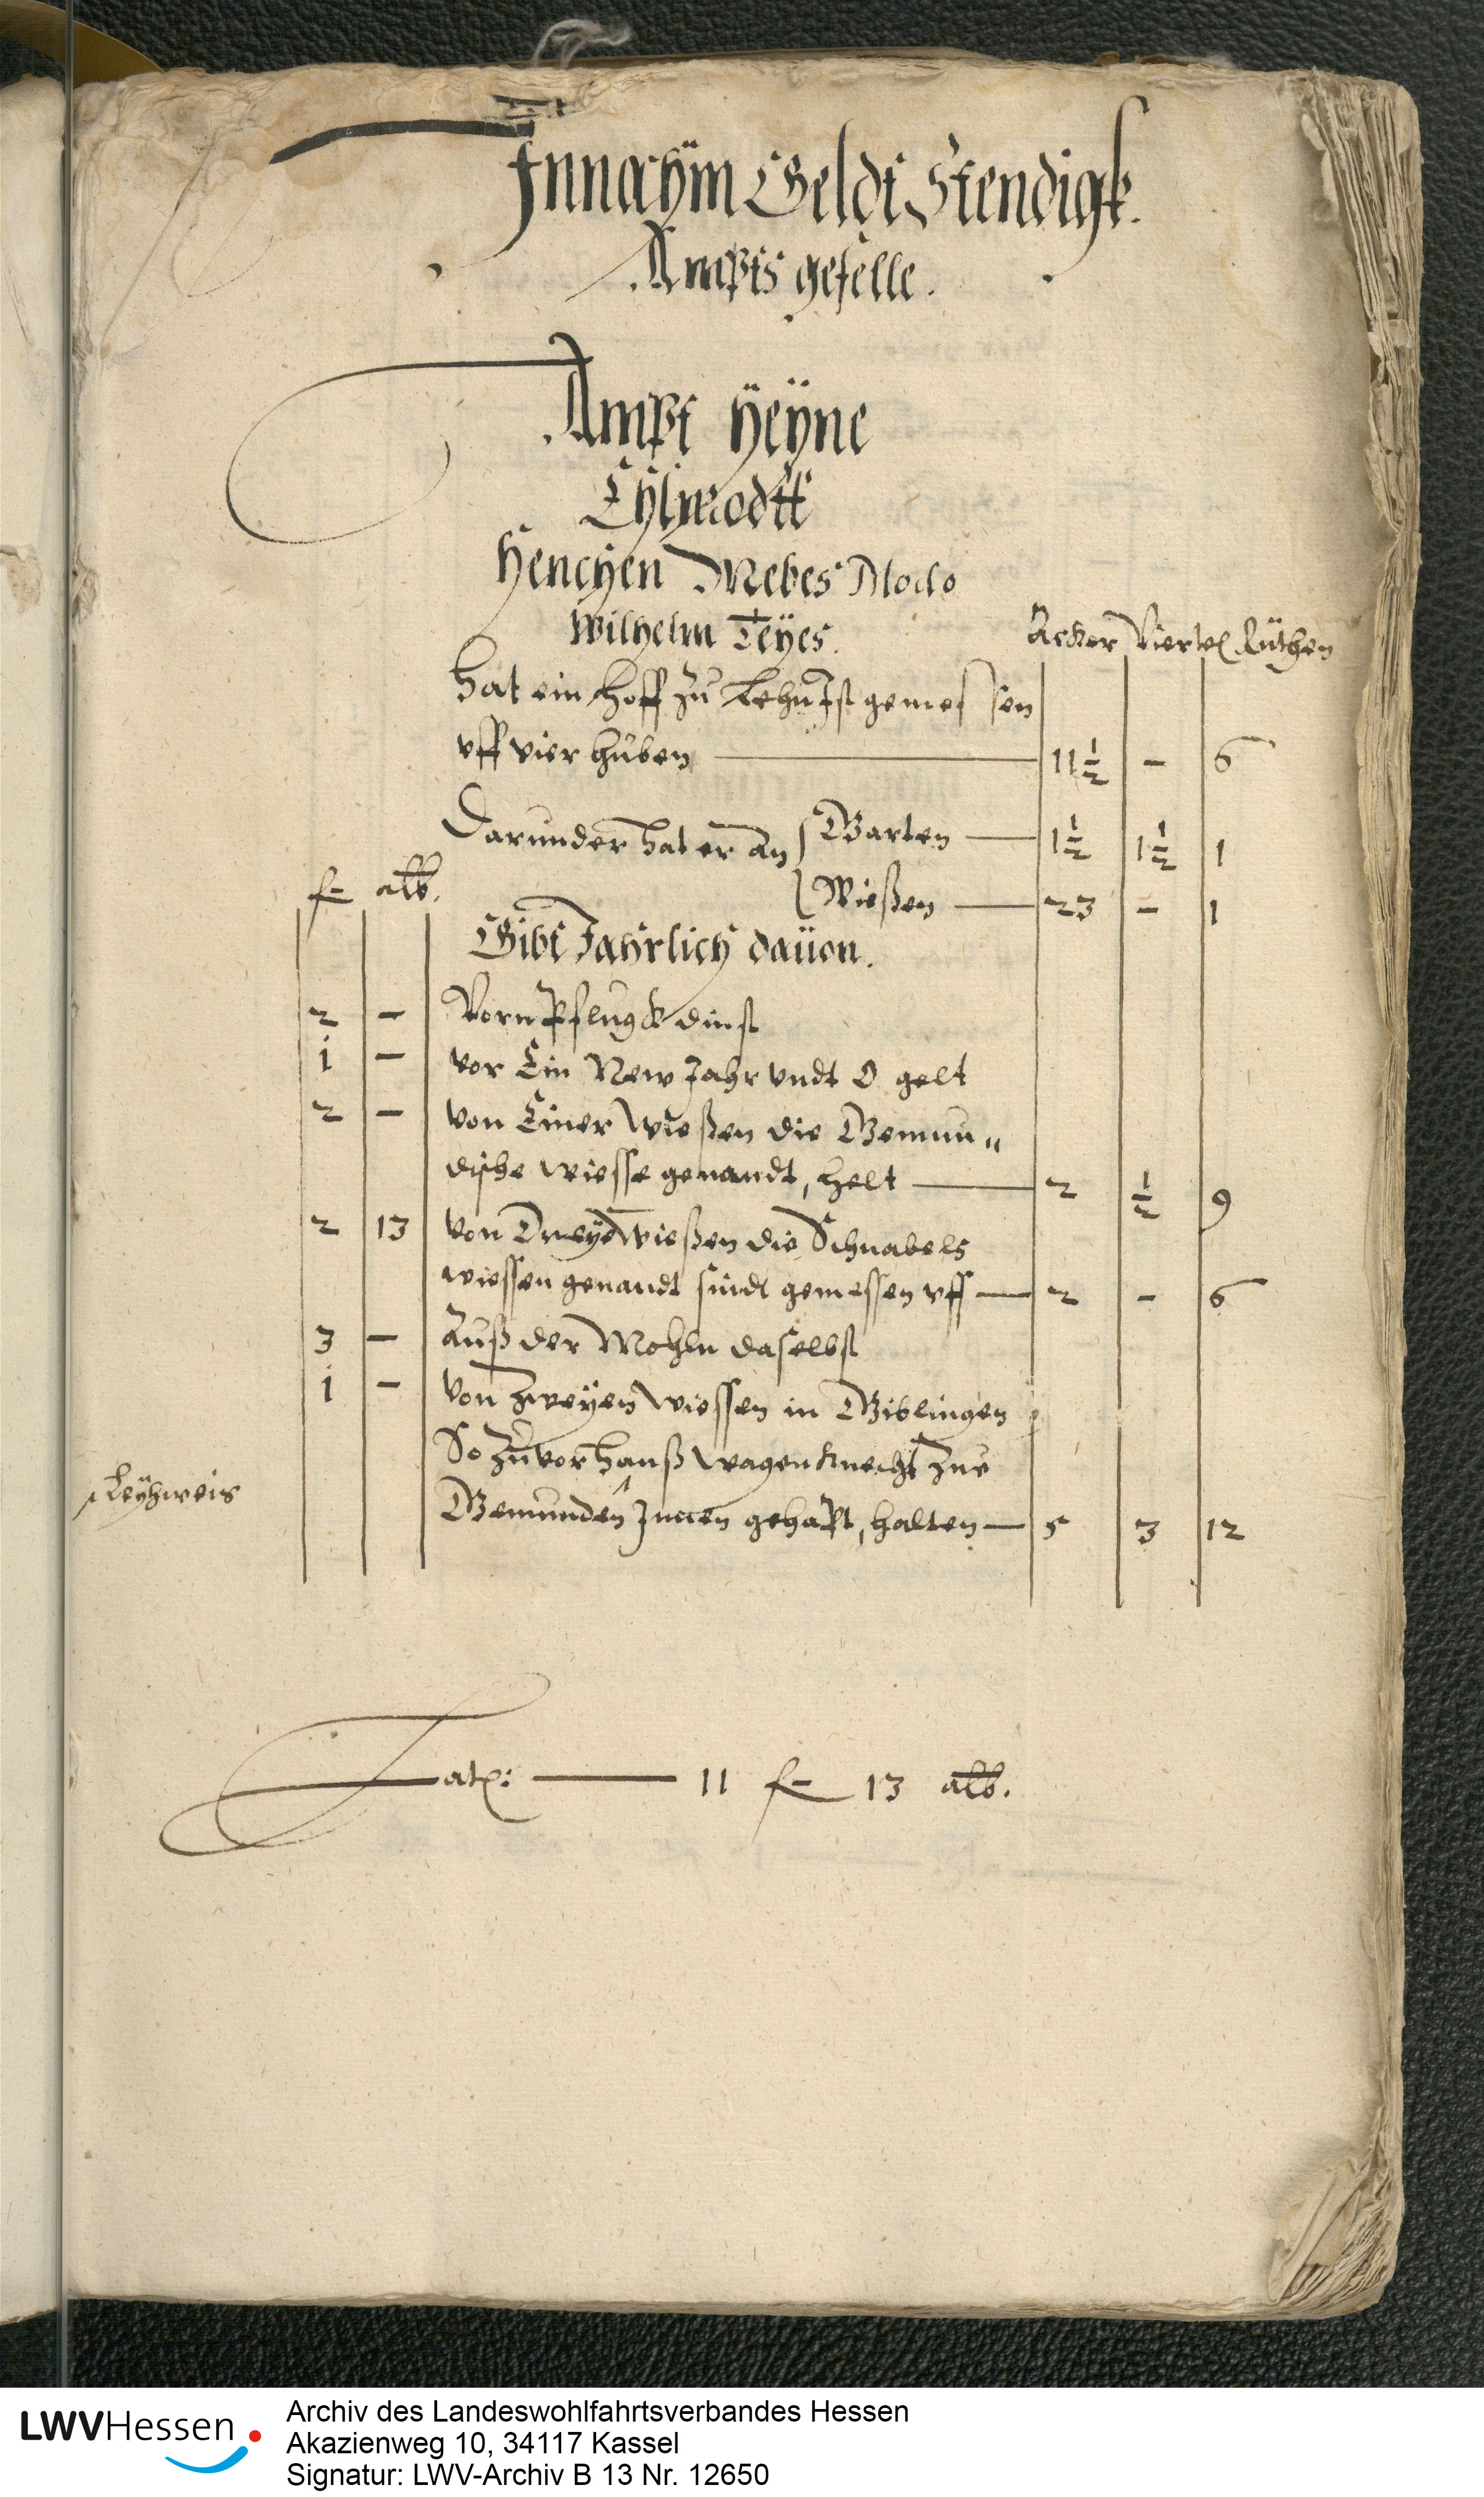 Innahm Geldt Stendigk.
Ampts gefelle.
Ampt Heyne
Ellnrodtt
Henchen Mebes Modo
Wilhelm Teyes.
Acker Viertel Rüthen
hat ein hoff zu Lehn Ist gemessen
vff vier huben — 11½ - 6
Darunder hat er an Garten — 1½ 1½ 1
f alb.
Wießen — 23 - 1
Gibt Jahrlich dauon.
2 - Vorn Pflugk dinst
1 - vor Ein New Jahr vndt O gelt
2 - von Einer Wießen die Gemun„
dische wiesse genandt, helt — 2 ½ 9
2 13 von Dreyen Wießen die Schnabels
wiessen genandt sindt gemessen vff — 2 - 6
3 - Auß der Mohln daselbst
1 - von Zweyen Wiessen in Giblingen
So Zuuor hanß wagenknecht Zue
Leyhweis
Gemunden Innen gehapt, halten — 5 3 12
Latus: — 11 f 13 alb.
LWVHessen
Archiv des Landeswohlfahrtsverbandes Hessen
Akazienweg 10, 34117 Kassel
Signatur: LWV-Archiv B 13 Nr. 12650